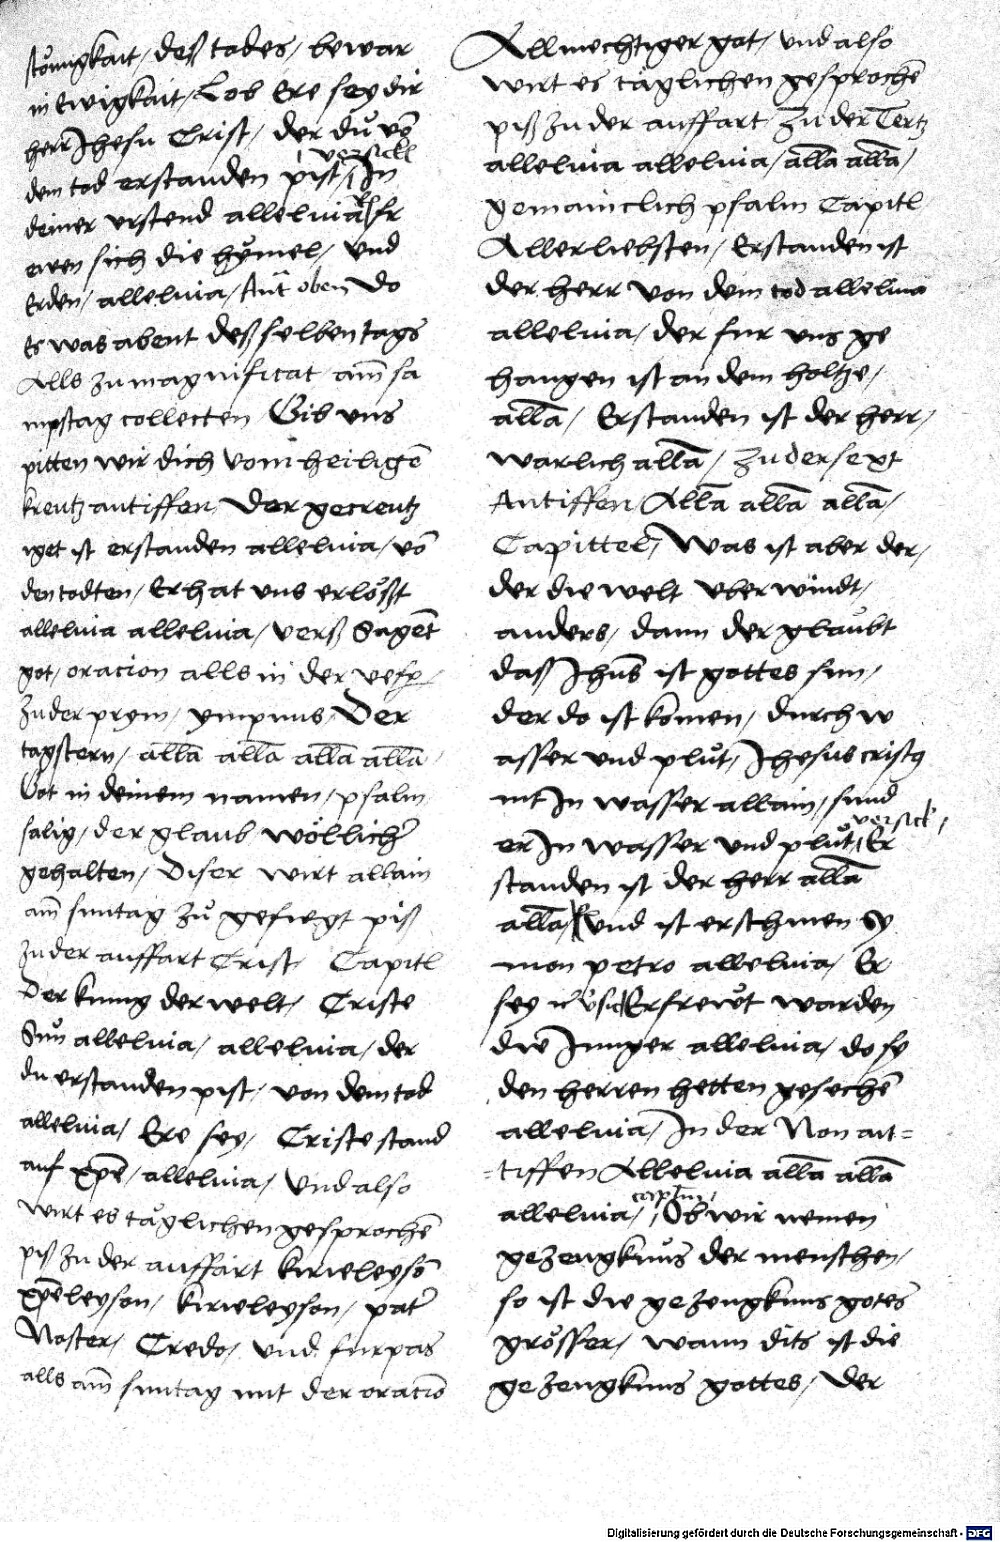 deß todes, bewar
in Ewigkait, Lob Ere sey dir
herr Jhesu Crist, der dů võ
versickl
dem tod erstanden pist, In
deiner urstend alleluia fr
ewen sich die hymel, und
Erden, alleluia, Ant̃ oben Do
Es was abent deß selben tags
Alls zu magnificat am̃ sa
mpstag collecten Gib uns
pitten wir dich Vom heiligẽ
kreutz antiffen, Der gecreutz
iget ist erstanden alleluia, võ
den todten, Er hat uns erlößt
alleluia alleluia, verß Sagẽt
got, oracion alls in der vesp̲
Zu der prym, ympnus, Der
tagstern, all̃a all̃a all̃a all̃a
Got in deinem namen, psalm
salig, der glaub wöllich̃
gehalten, Diser wirt allain
am̃ suntag zů gefuegt piß
zu der auffart Crist, Capitl
Der kunig der welt, Criste
Sůn alleluia, alleluia, der
du erstanden pist, von dem tod
alleluia, Ere sey, Criste stand
auf xp̃e, alleluia, Und also
wirt es täglichen gesprochẽ
piß zu der auffart kirieleysõ
xp̃eleyson, kirieleyson, pat̃
Noster, Credo, und furpas
alls am̃ suntag mit der oraciõ
Allmechtiger got, und also
wirt es täglichen gesprochẽ
piß zu der auffart Zu der Tertz
alleluia alleluia, all̃a all̃a,
gemainclich psalm Capitl
Allerliebsten, Erstanden ist
der herr von dem tod alleluia
alleluia, der fur uns ge
hangen ist an dem holtze,
all̃a, Erstanden ist der herr,
warlich all̃a, Zu der sext
Antiffen, All̃a all̃a all̃a,
Capittel, Was ist aber der,
der die welt uberwindt,
anders, dann der glaubt
daß Jhũs ist gottes sun,
der do ist komen, durch w
asser und plůt, Jhesus cristꝯ
nit In wasser allain, sund
versick'
er In wasser und plůt, Er
standen ist der herr all̃a
all̃a, und ist erschinen Sy
mon petro alleluia, Er
sey Erfrewt warden
die Junger alleluia, do sy
den herren hetten gesechẽ
alleluia, In der Non an=
=tiffen Alleluia all̃a all̃a
capitm̃,
alleluia, Ob wir nemen
gezeugknus der menschen,
so ist die gezeugknus gotes
grösser, wann dits ist die
gezeugknus gottes, der
Digitalisierung gefördert durch die Deutsche Forschungsgemeinschaft - DFG